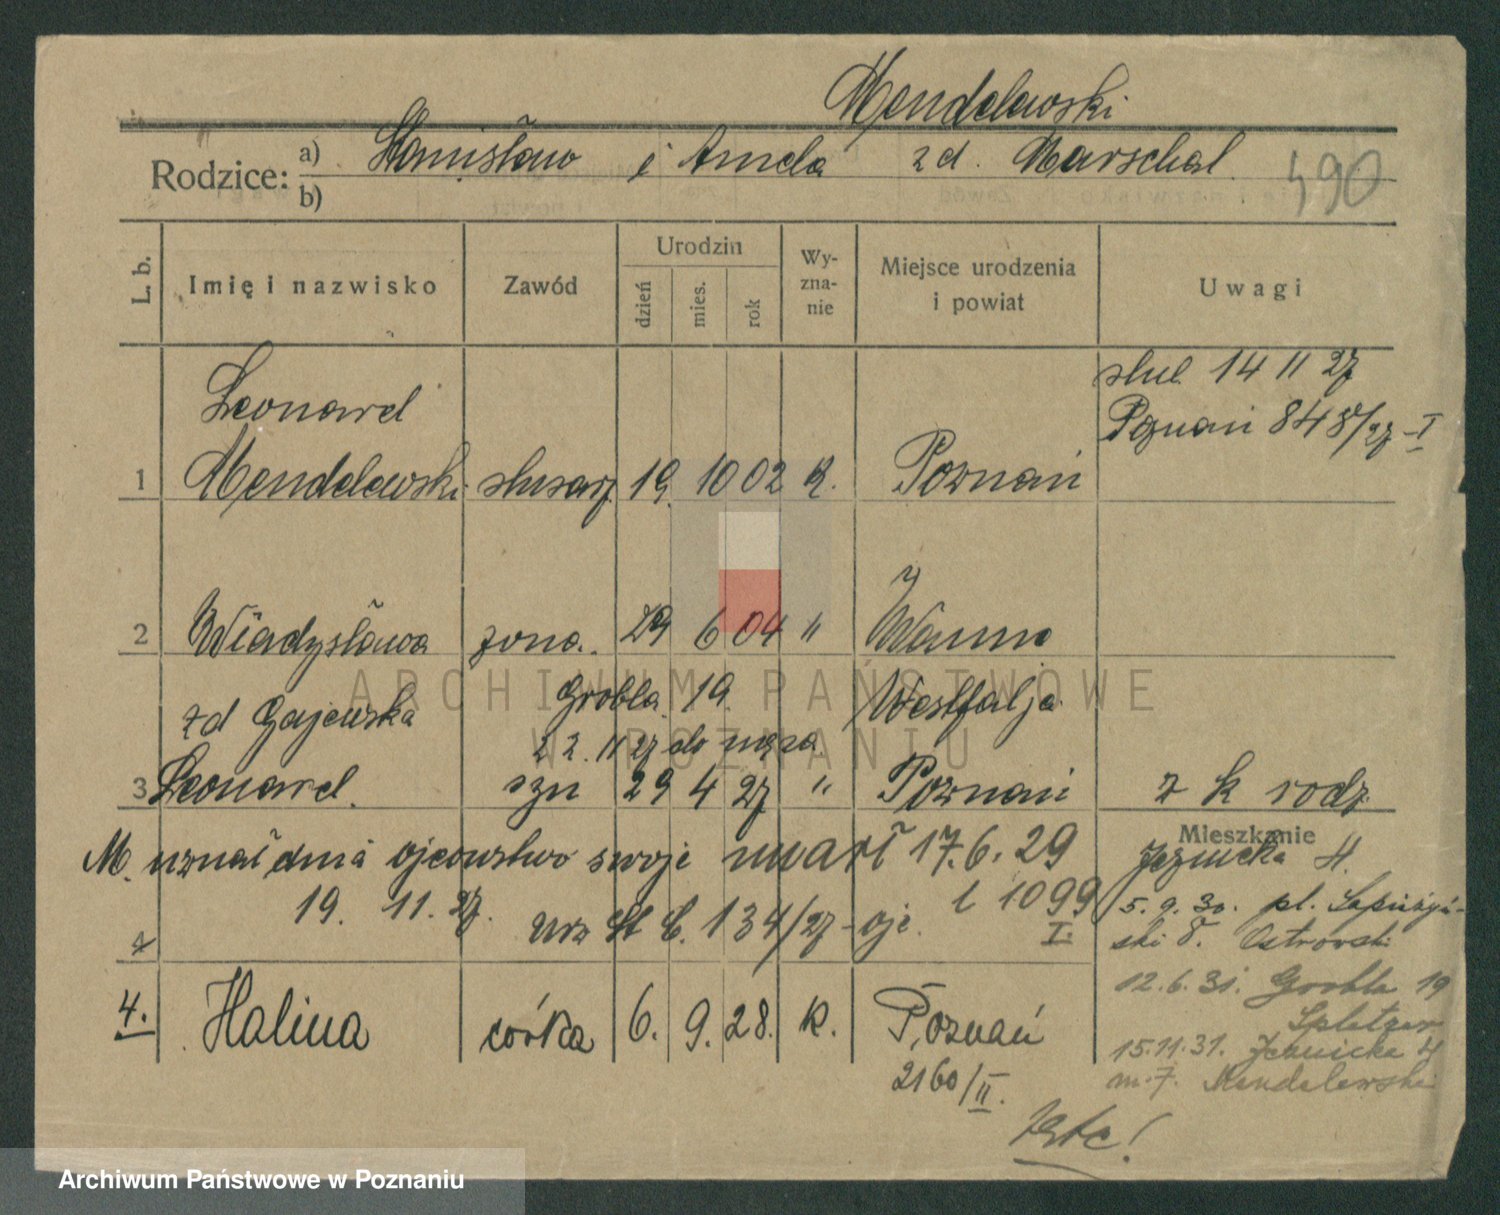 Mendelewski
Rodzice: a) Stanisław i Aniela zd. Marschal.
b)
490
L. b. Imię i nazwisko Zawód Urodzin dzień mies. rok Wy-zna-nie Miejsce urodzenia i powiat Uwagi
ślub. 14 11 27
Poznań 848/27-I
Leonard
1 Mendelewski ślusarz 19. 10 02 k. Poznań
2 Władysława żona. 29 6 04 " Wanne
zd Gajewska Grobla 19. Westfalja
22. 11 27 do męża.
3 Leonard. syn 29 4 27 " Poznań z k rodz
Mieszkanie
M. uznał dnia ojcowstwo swoje umarł 17.6.29 Jeznicka 4.
19. 11. 27. Urz St C. 134/27 - ojc. l 1099 I.
4
5.9.30. pl. Sapieżyń-
ski 8. Ostrowski
12.6.31. Grobla 19
Spletzer
15.11.31. Jeznicka 4
m. 7. Mendelewski
4. Halina córka 6. 9. 28. k. Poznań
2160/II.
ARCHIWUM PAŃSTWOWE
W POZNANIU
Archiwum Państwowe w Poznaniu